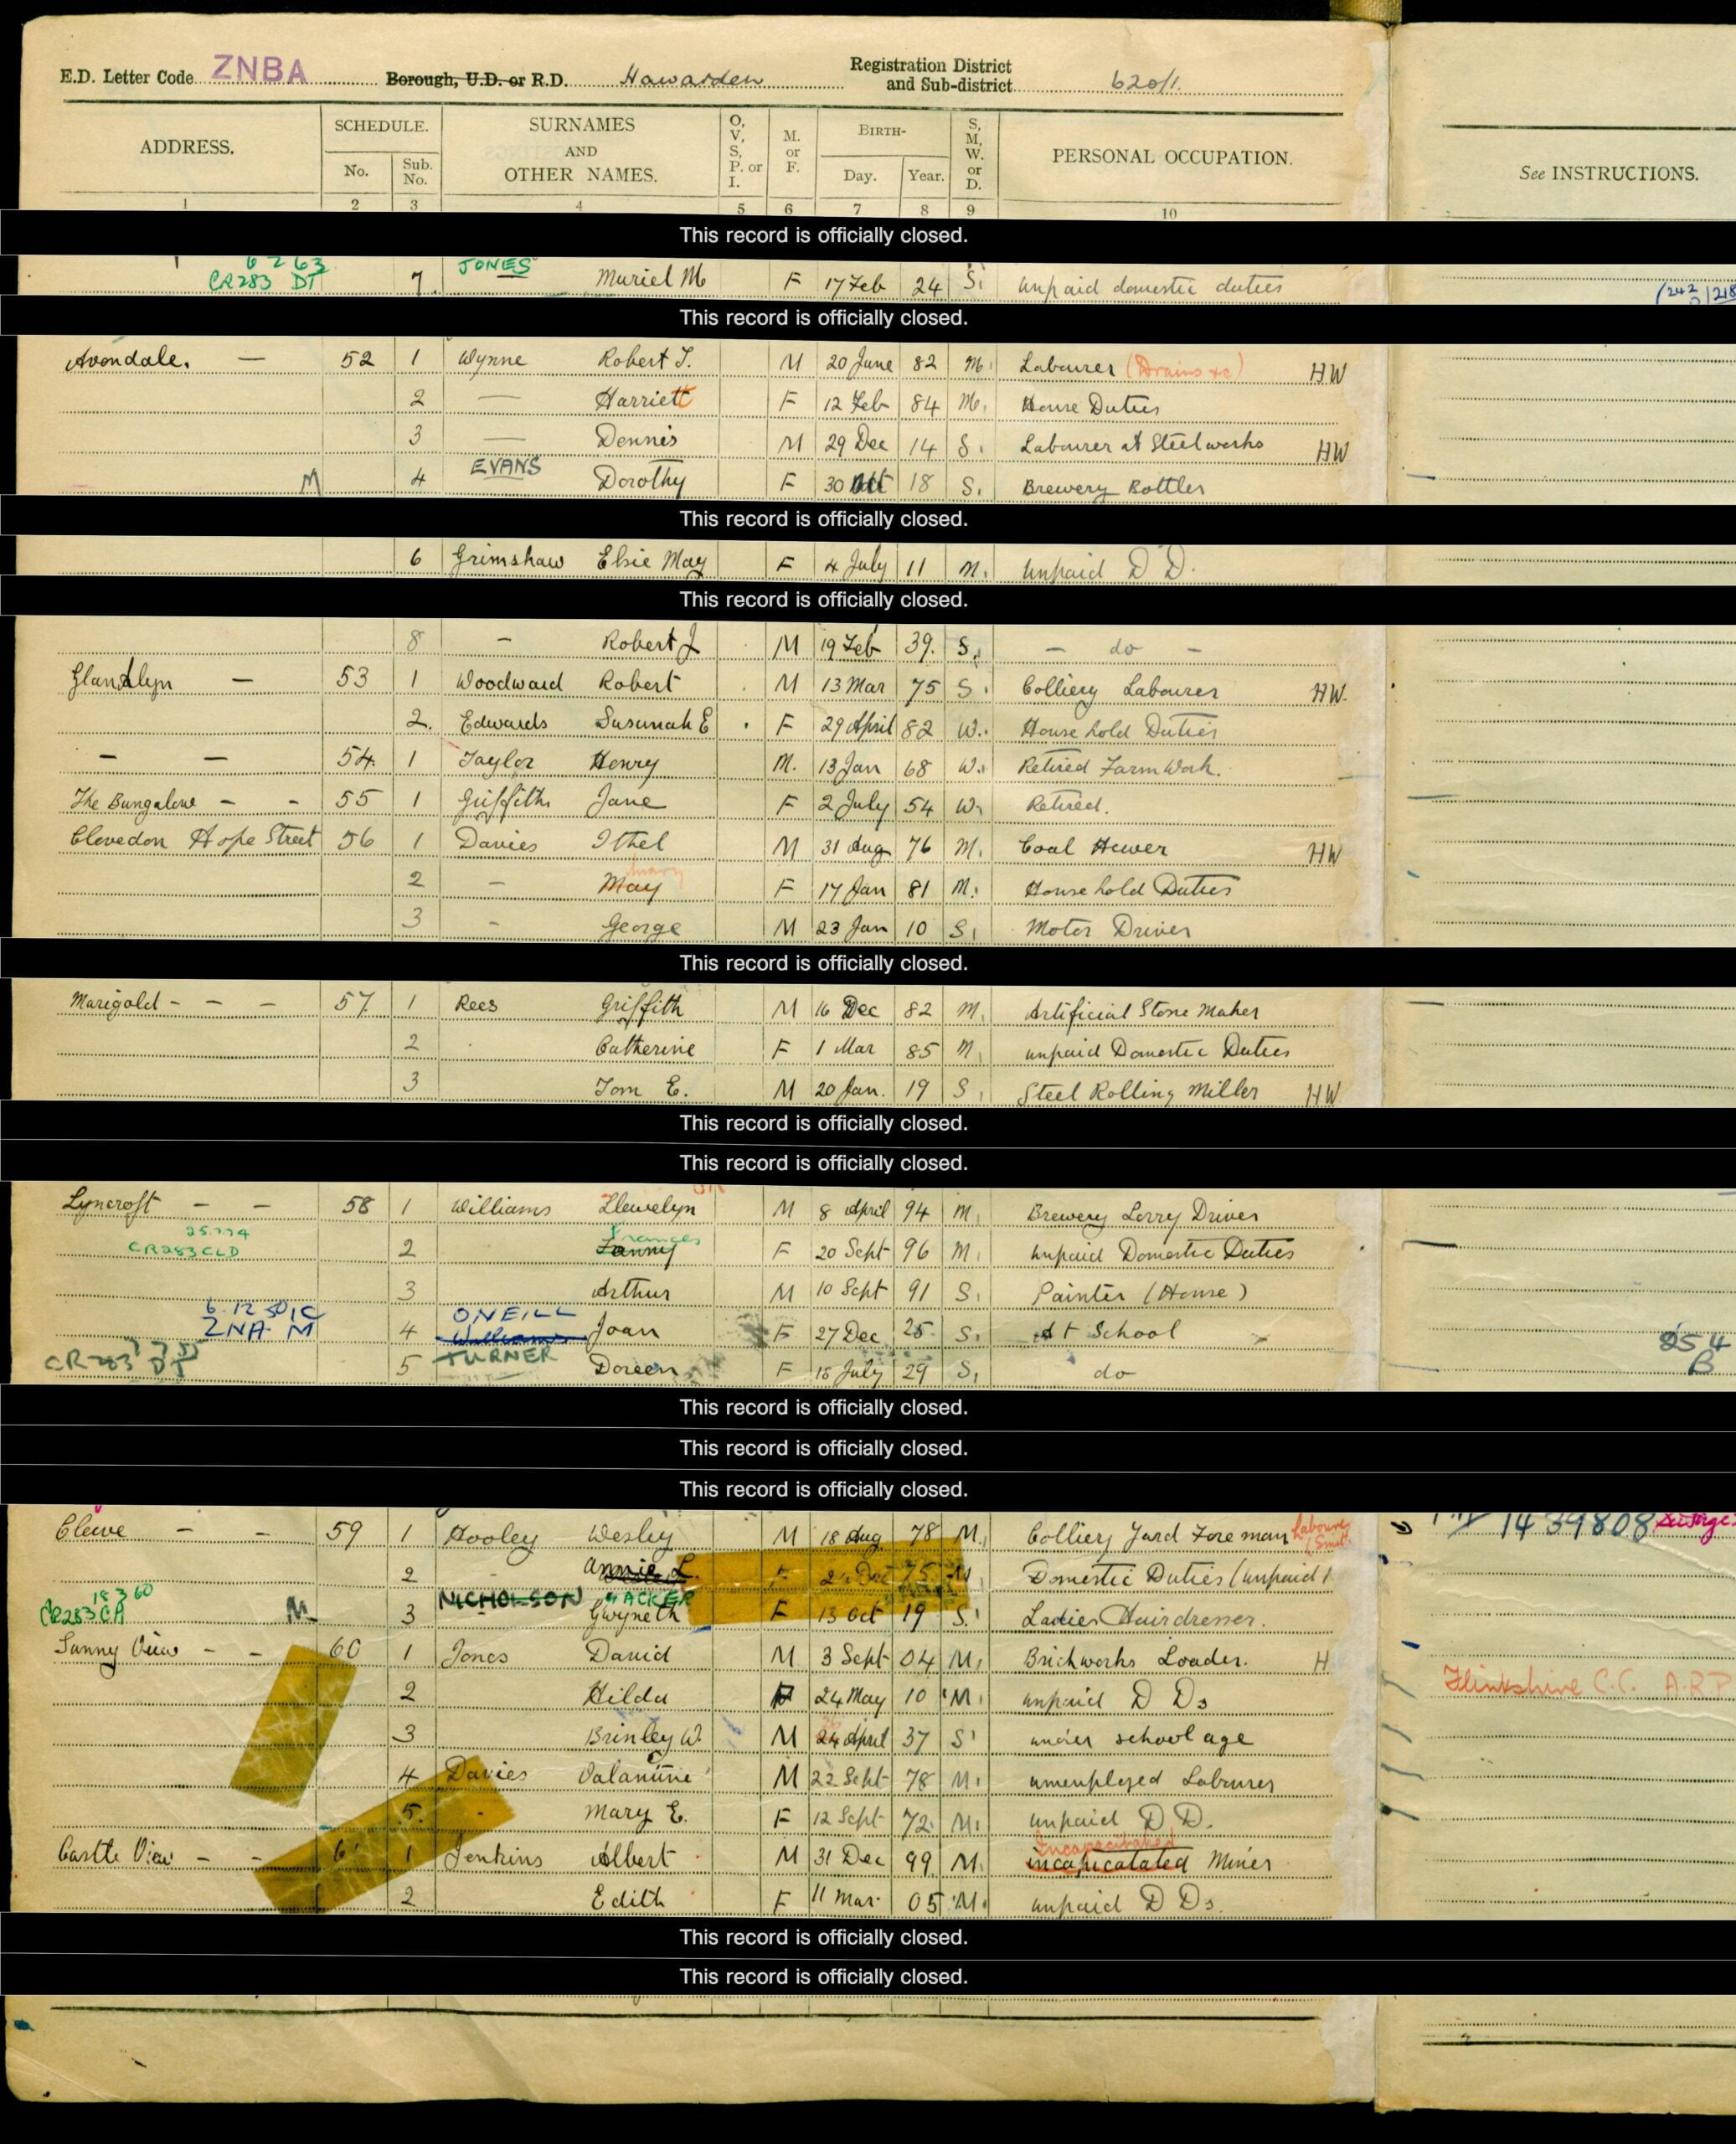 E.D. Letter Code ZNBA Borough, U.D. or R.D. Hawarden Registration District and Sub-district 620/1.
ADDRESS. SCHEDULE. No. Sub. No. SURNAMES AND OTHER NAMES. O, V, S, P. or I. M. or F. BIRTH- Day. Year. S, M, W. or D. PERSONAL OCCUPATION. See INSTRUCTIONS.
1 2 3 4 5 6 7 8 9 10
This record is officially closed.
6 2 63 JONES
CR283 DT 7. Muriel M F 17 Feb 24 S. unpaid domestic duties
This record is officially closed.
Avondale. — 52 1 Wynne Robert T. M 20 June 82 M. Labourer (Drains &c) HW
2 — Harriett F 12 Feb 84 M. House Duties
3 — Dennis M 29 Dec 14 S. Labourer at Steelworks HW
EVANS
M 4 Dorothy F 30 Oct 18 S. Brewery Bottler
This record is officially closed.
6 Grimshaw Elsie May F 4 July 11 M. unpaid D D.
This record is officially closed.
8 - Robert J M 19 Feb 39. S. — do —
Glandlyn — 53 1 Woodward Robert M 13 Mar 75 S. Colliery Labourer HW.
2. Edwards Susannah E F 29 April 82 W. House hold Duties
— — 54. 1 Taylor Henry M. 13 Jan 68 W. Retired Farm Work.
The Bungalow - - 55 1 Griffiths Jane F 2 July 54 W. Retired.
Clevedon Hope Street 56 1 Davies Ithel M 31 Aug 76 M. Coal Hewer HW
Mary
2 - May F 17 Jan 81 M. House hold Duties
3 - George M 23 Jan 10 S. Motor Driver
This record is officially closed.
Marigold - - - 57. 1 Rees Griffith M 16 Dec 82 M. Artificial Stone Maker
2 Catherine F 1 Mar 85 M. unpaid Domestic Duties
3 Tom E. M 20 Jan. 19 S. Steel Rolling Miller HW
This record is officially closed.
This record is officially closed.
Lyncroft - - 58 1 Williams Llewelyn M 8 April 94 M. Brewery Lorry Driver
Frances
CR283 CLD 2 Fanny F 20 Sept 96 M. unpaid Domestic Duties
3 Arthur M 10 Sept 91 S. Painter (House)
6.12.50 IC ONEILL
ZNA M 4 Williams Joan F 27 Dec 25. S. At School 254
TURNER B
CR283 DT 5 Doreen F 18 July 29 S. do
This record is officially closed.
This record is officially closed.
This record is officially closed.
Cleeve - - 59 1 Hooley Wesley M 18 Aug 78 M. Colliery Yard Foreman Labourer 1439808
2 - Annie L. F 75 M. Domestic Duties (unpaid)
18 3 60 NICHOLSON HACKER
CR283 CH M 3 Gwyneth F 13 Oct 19 S. Ladies Hairdresser.
Sunny View - - 60 1 Jones David M 3 Sept 04 M. Brickworks Loader. H
2 Hilda F 24 May 10 M. unpaid D Ds Flintshire C.C. A.R.P
3 Brinley W. M 24 April 37 S. under school age
4 Davies Valantine M 22 Sept 78 M. unemployed Labourer
5. - Mary E. F 12 Sept 72. M. unpaid D D.
Incapacitated
Castle View - - 61 1 Jenkins Albert M 31 Dec 99 M. incapicatated Miner
2 Edith F 11 Mar. 05 M. unpaid D Ds.
This record is officially closed.
This record is officially closed.